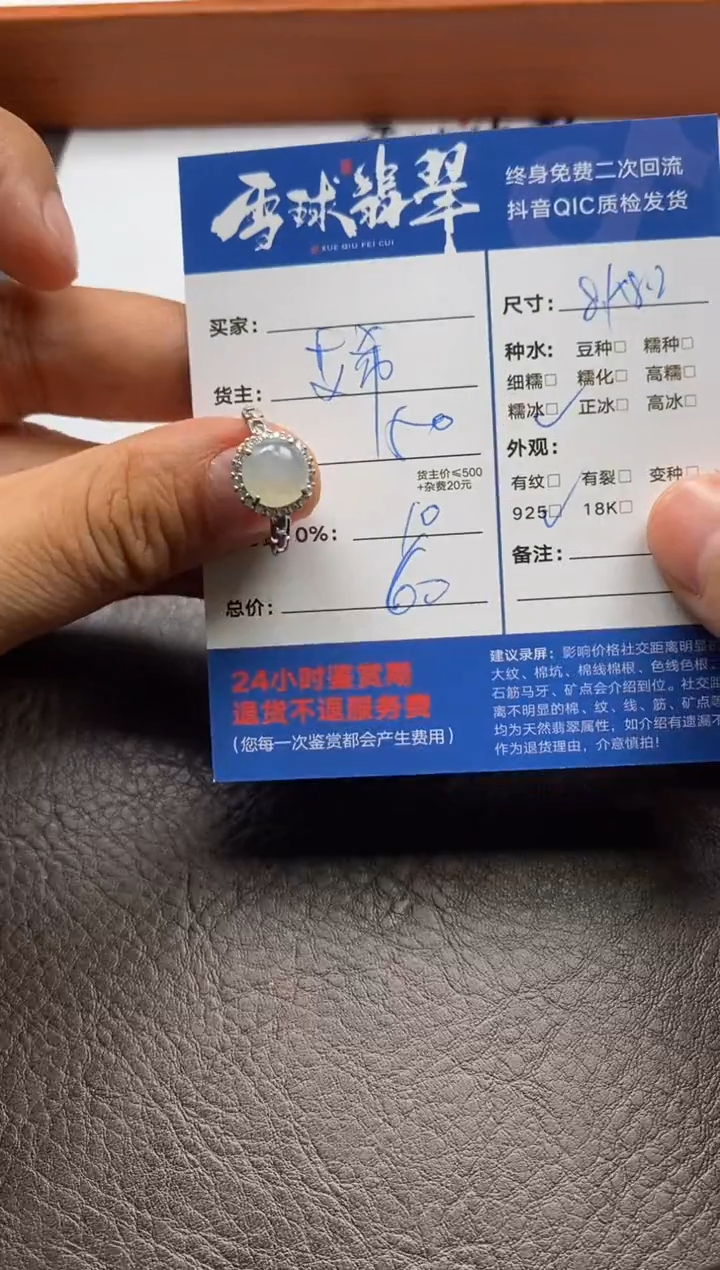 雪球翡翠
XUE QIU FEI CUI
终身免费二次回流
抖音QIC质检发货
买家：
货主：
50
货主价≤500
+杂费20元
0%：
10
总价：
60
24小时鉴赏期
退货不退服务费
（您每一次鉴赏都会产生费用）
尺寸：
种水：豆种□ 糯种□
细糯□ 糯化□ 高糯□
糯冰□ 正冰□ 高冰□
外观：
有纹□ 有裂□ 变种□
925□ 18K□
备注：
建议录屏：影响价格社交距离明显
大纹、棉坑、棉线棉根、色线色根
石筋马牙、矿点会介绍到位。社交距
离不明显的棉、纹、线、筋、矿点
均为天然翡翠属性，如介绍有遗漏不
作为退货理由，介意慎拍！